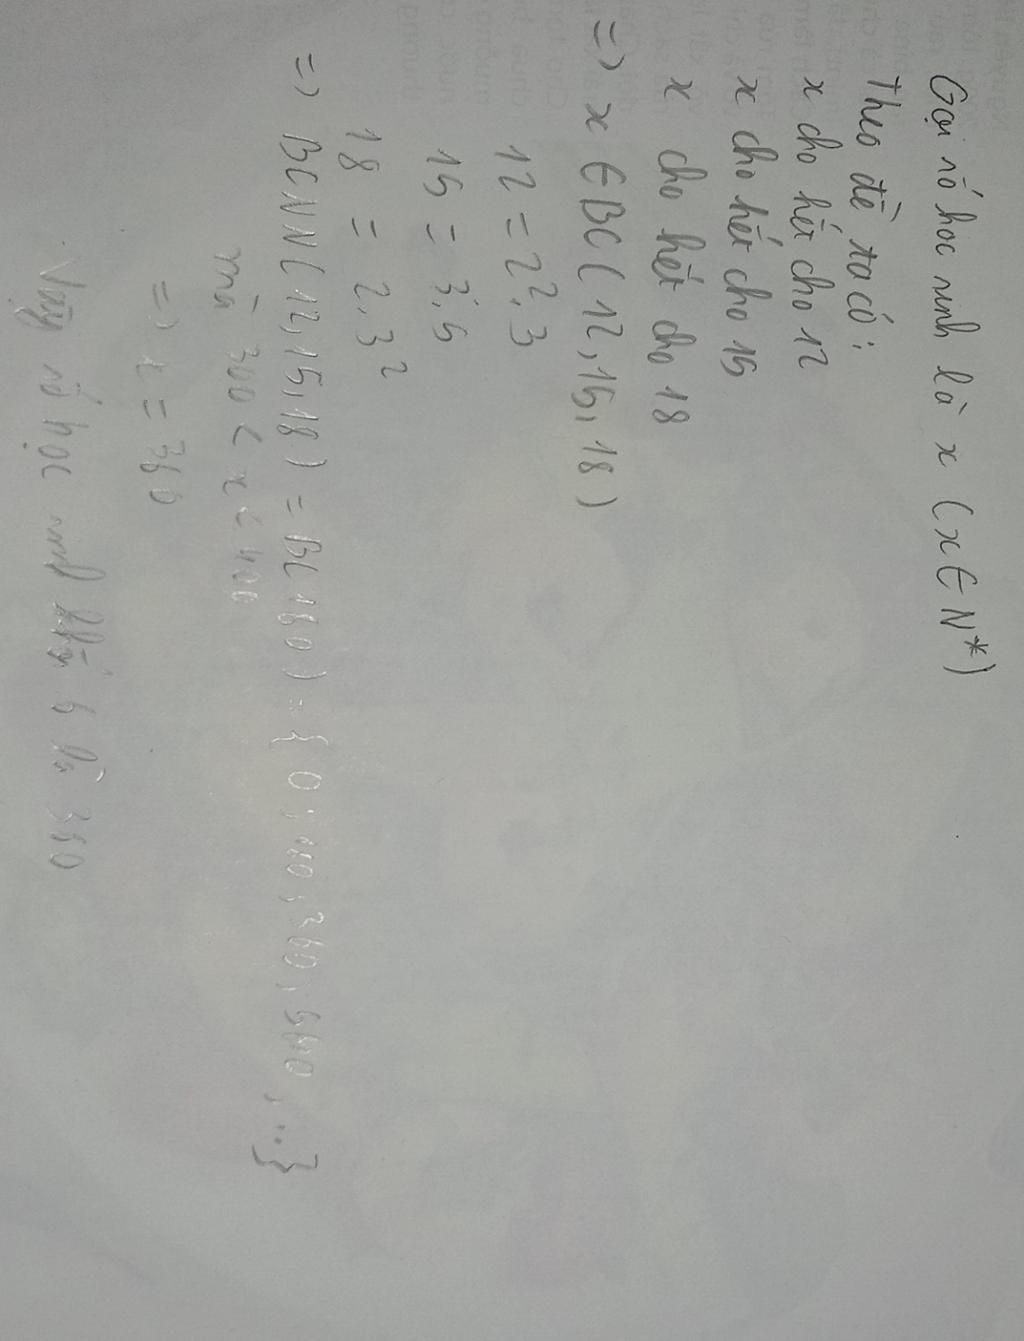 Gọi số học sinh là x (x ∈ N*)
Theo đề ta có:
x cho hết cho 12
x cho hết cho 15
x cho hết cho 18
=> x ∈ BC(12, 15, 18)
12 = 2².3
15 = 3.5
18 = 2.3²
=> BCNN(12, 15, 18) = BC180) = {0; 180; 360; 540, ...}
mà 300 < x < 400
=> x = 360
Vậy số học sinh khối 6 là 360